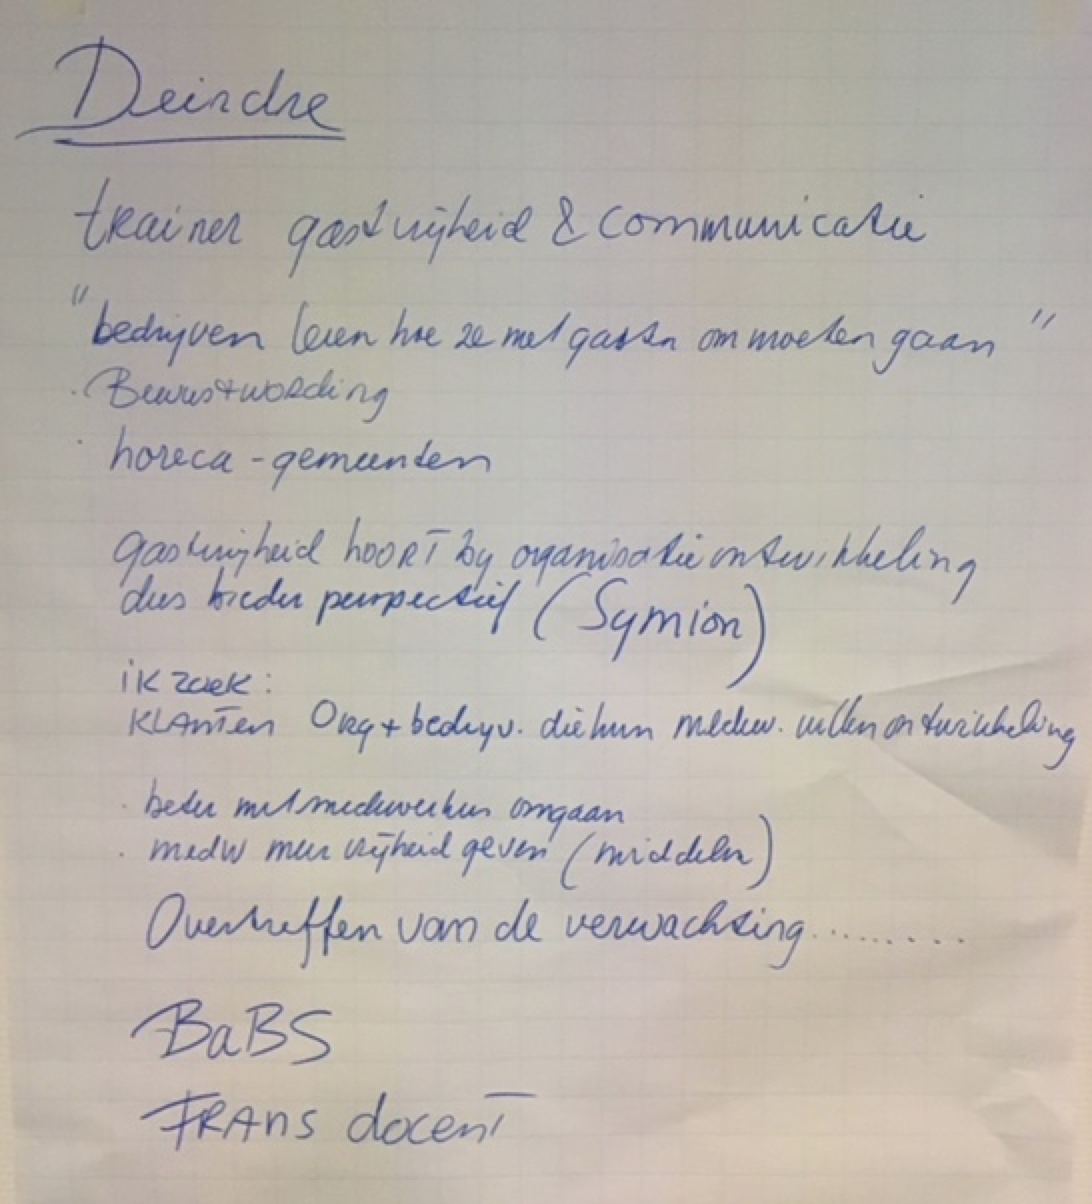 Deirdre
trainer gastvrijheid & communicatie
"bedrijven leren hoe ze met gasten om moeten gaan"
. Bewustwording
. horeca - gemeenten
gastvrijheid hoort bij organisatieontwikkeling
dus breder perspectief (Symion)
ik zoek:
KLANTEN Org + bedrijv. die hun medew. willen ontwikkeling
. beter met medewerkers omgaan
. medw meer vrijheid geven (middelen)
Overtreffen van de verwachting.........
BaBS
FRANS docent